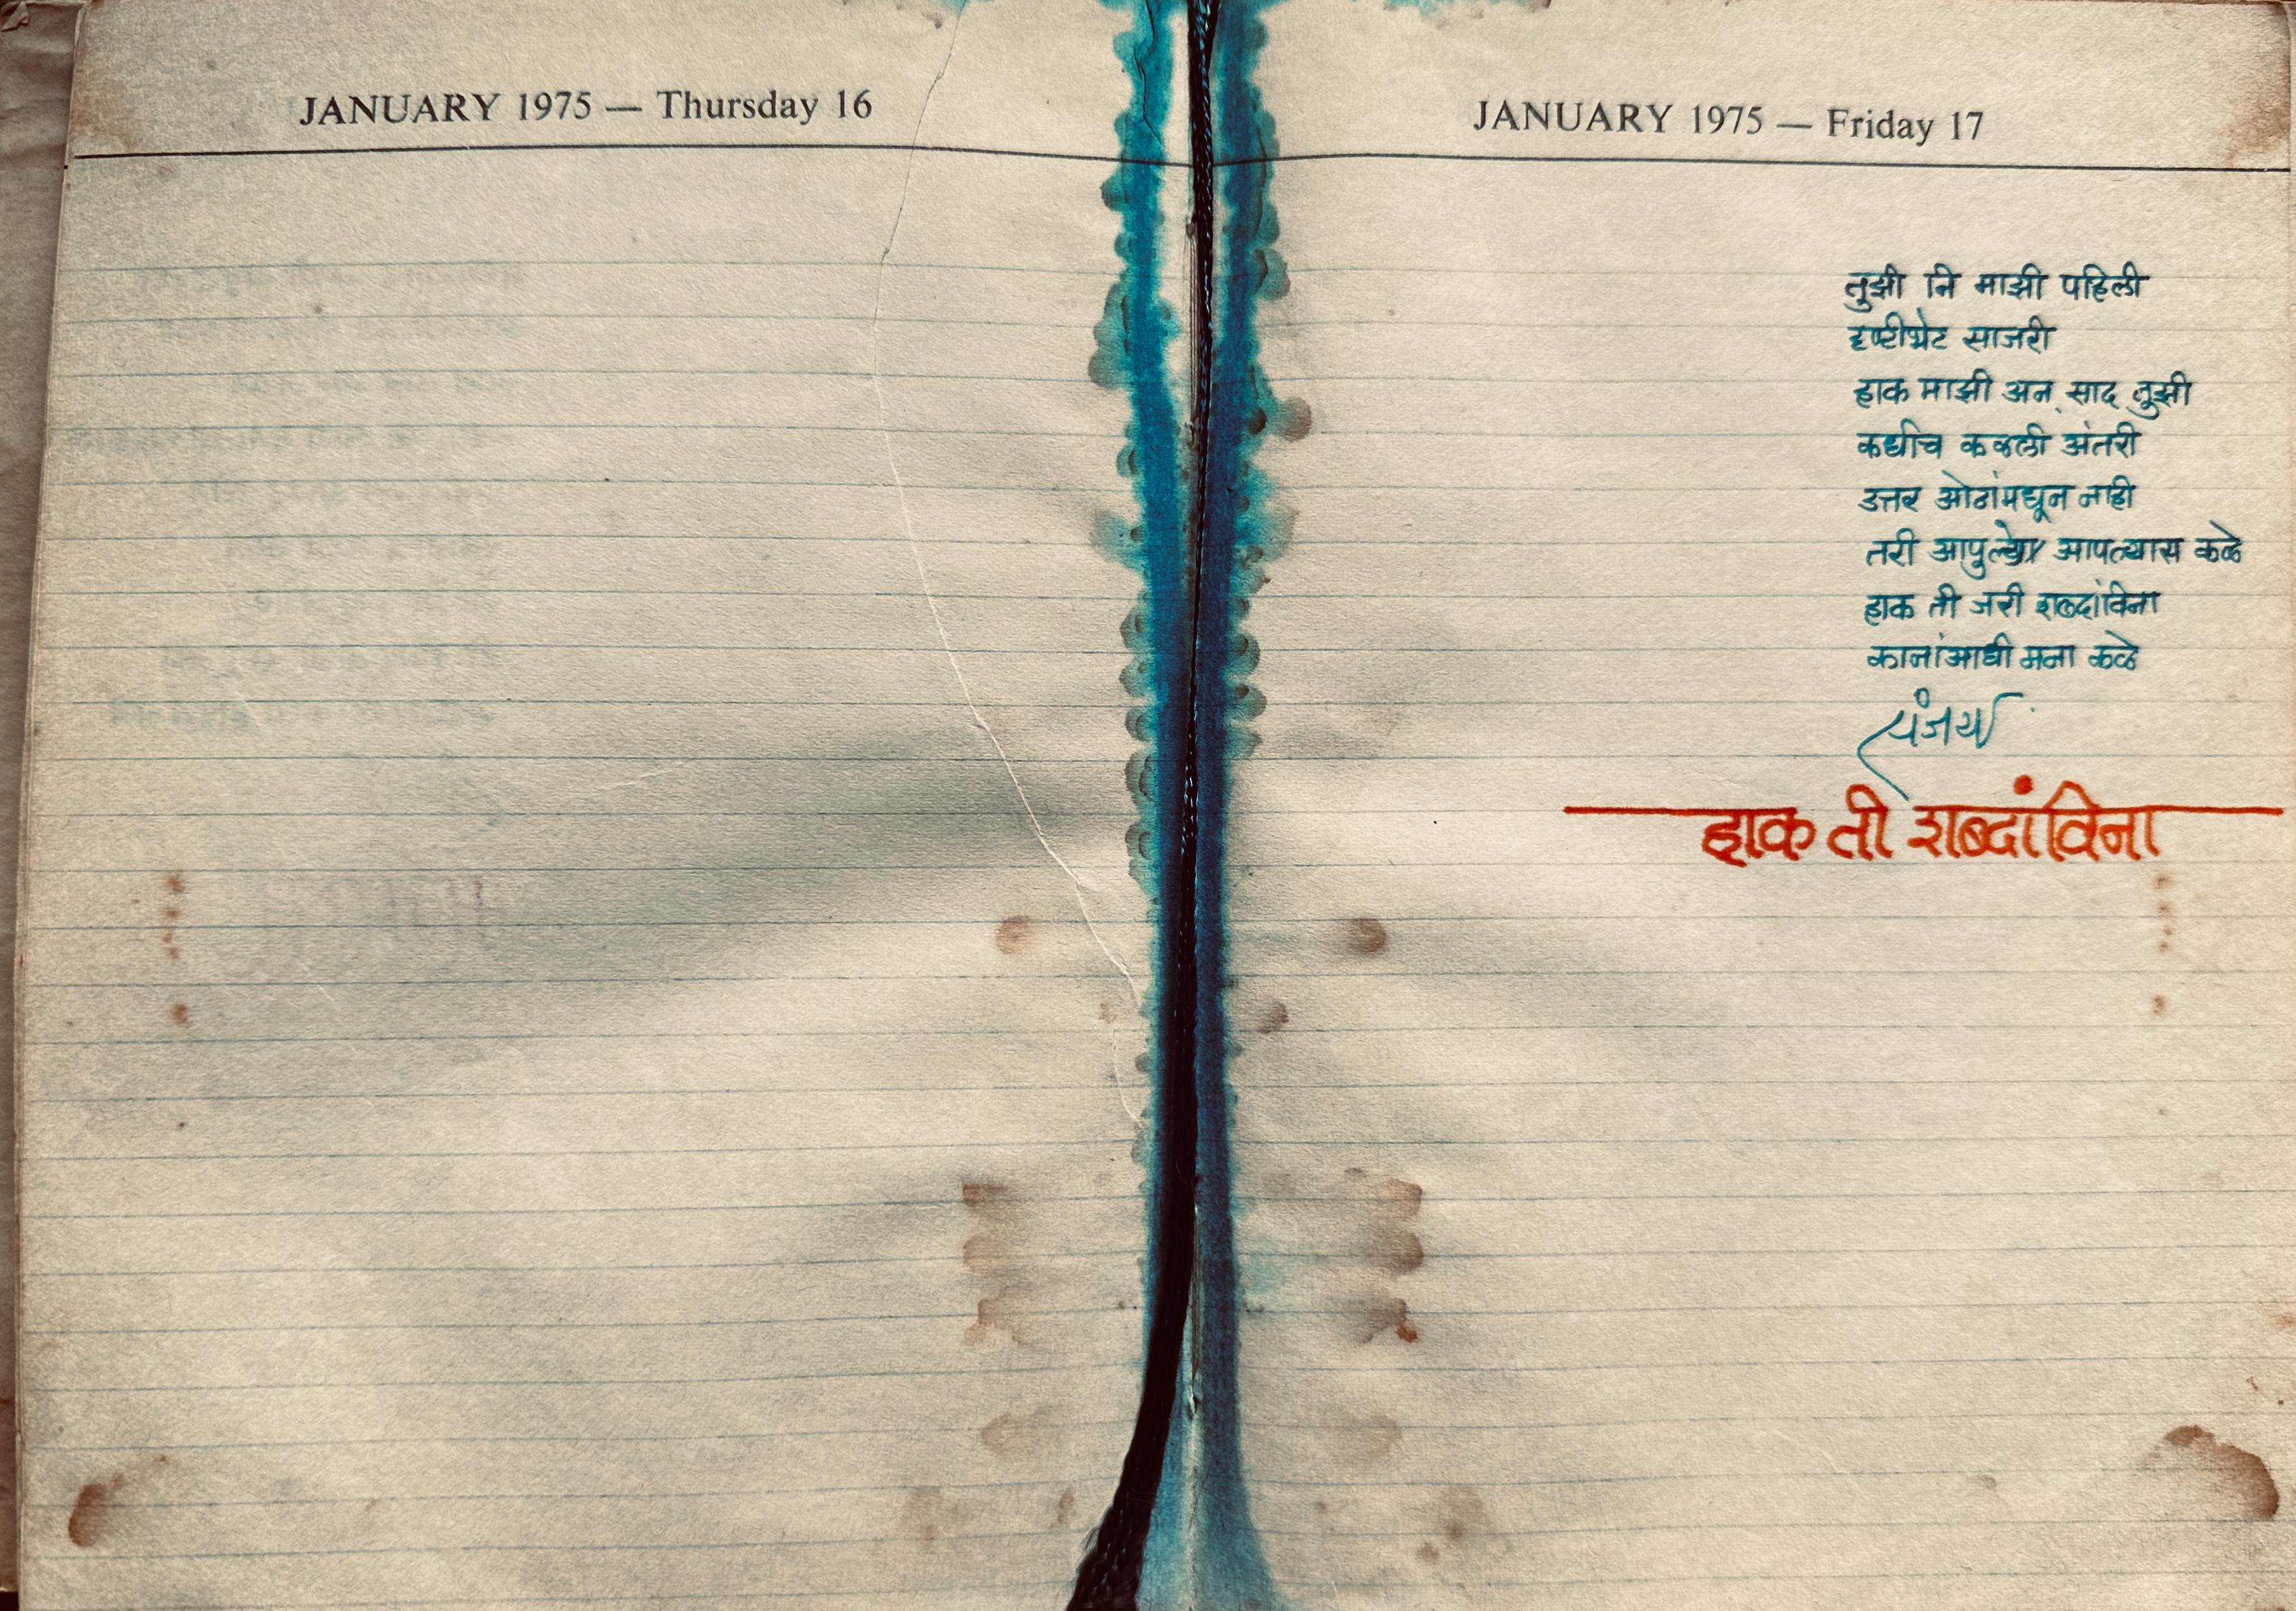 JANUARY 1975 — Thursday 16
JANUARY 1975 — Friday 17
तुझी नि माझी पहिली
दृष्टीभेट साजरी
हाक माझी अन् साद तुझी
कधीच कळली अंतरी
उत्तर ओठांमधून नाही
तरी आपुल्या आपल्यास कळे
हाक ती जरी शब्दांविना
कानांआधी मना कळे
संजय
हाक ती शब्दांविना